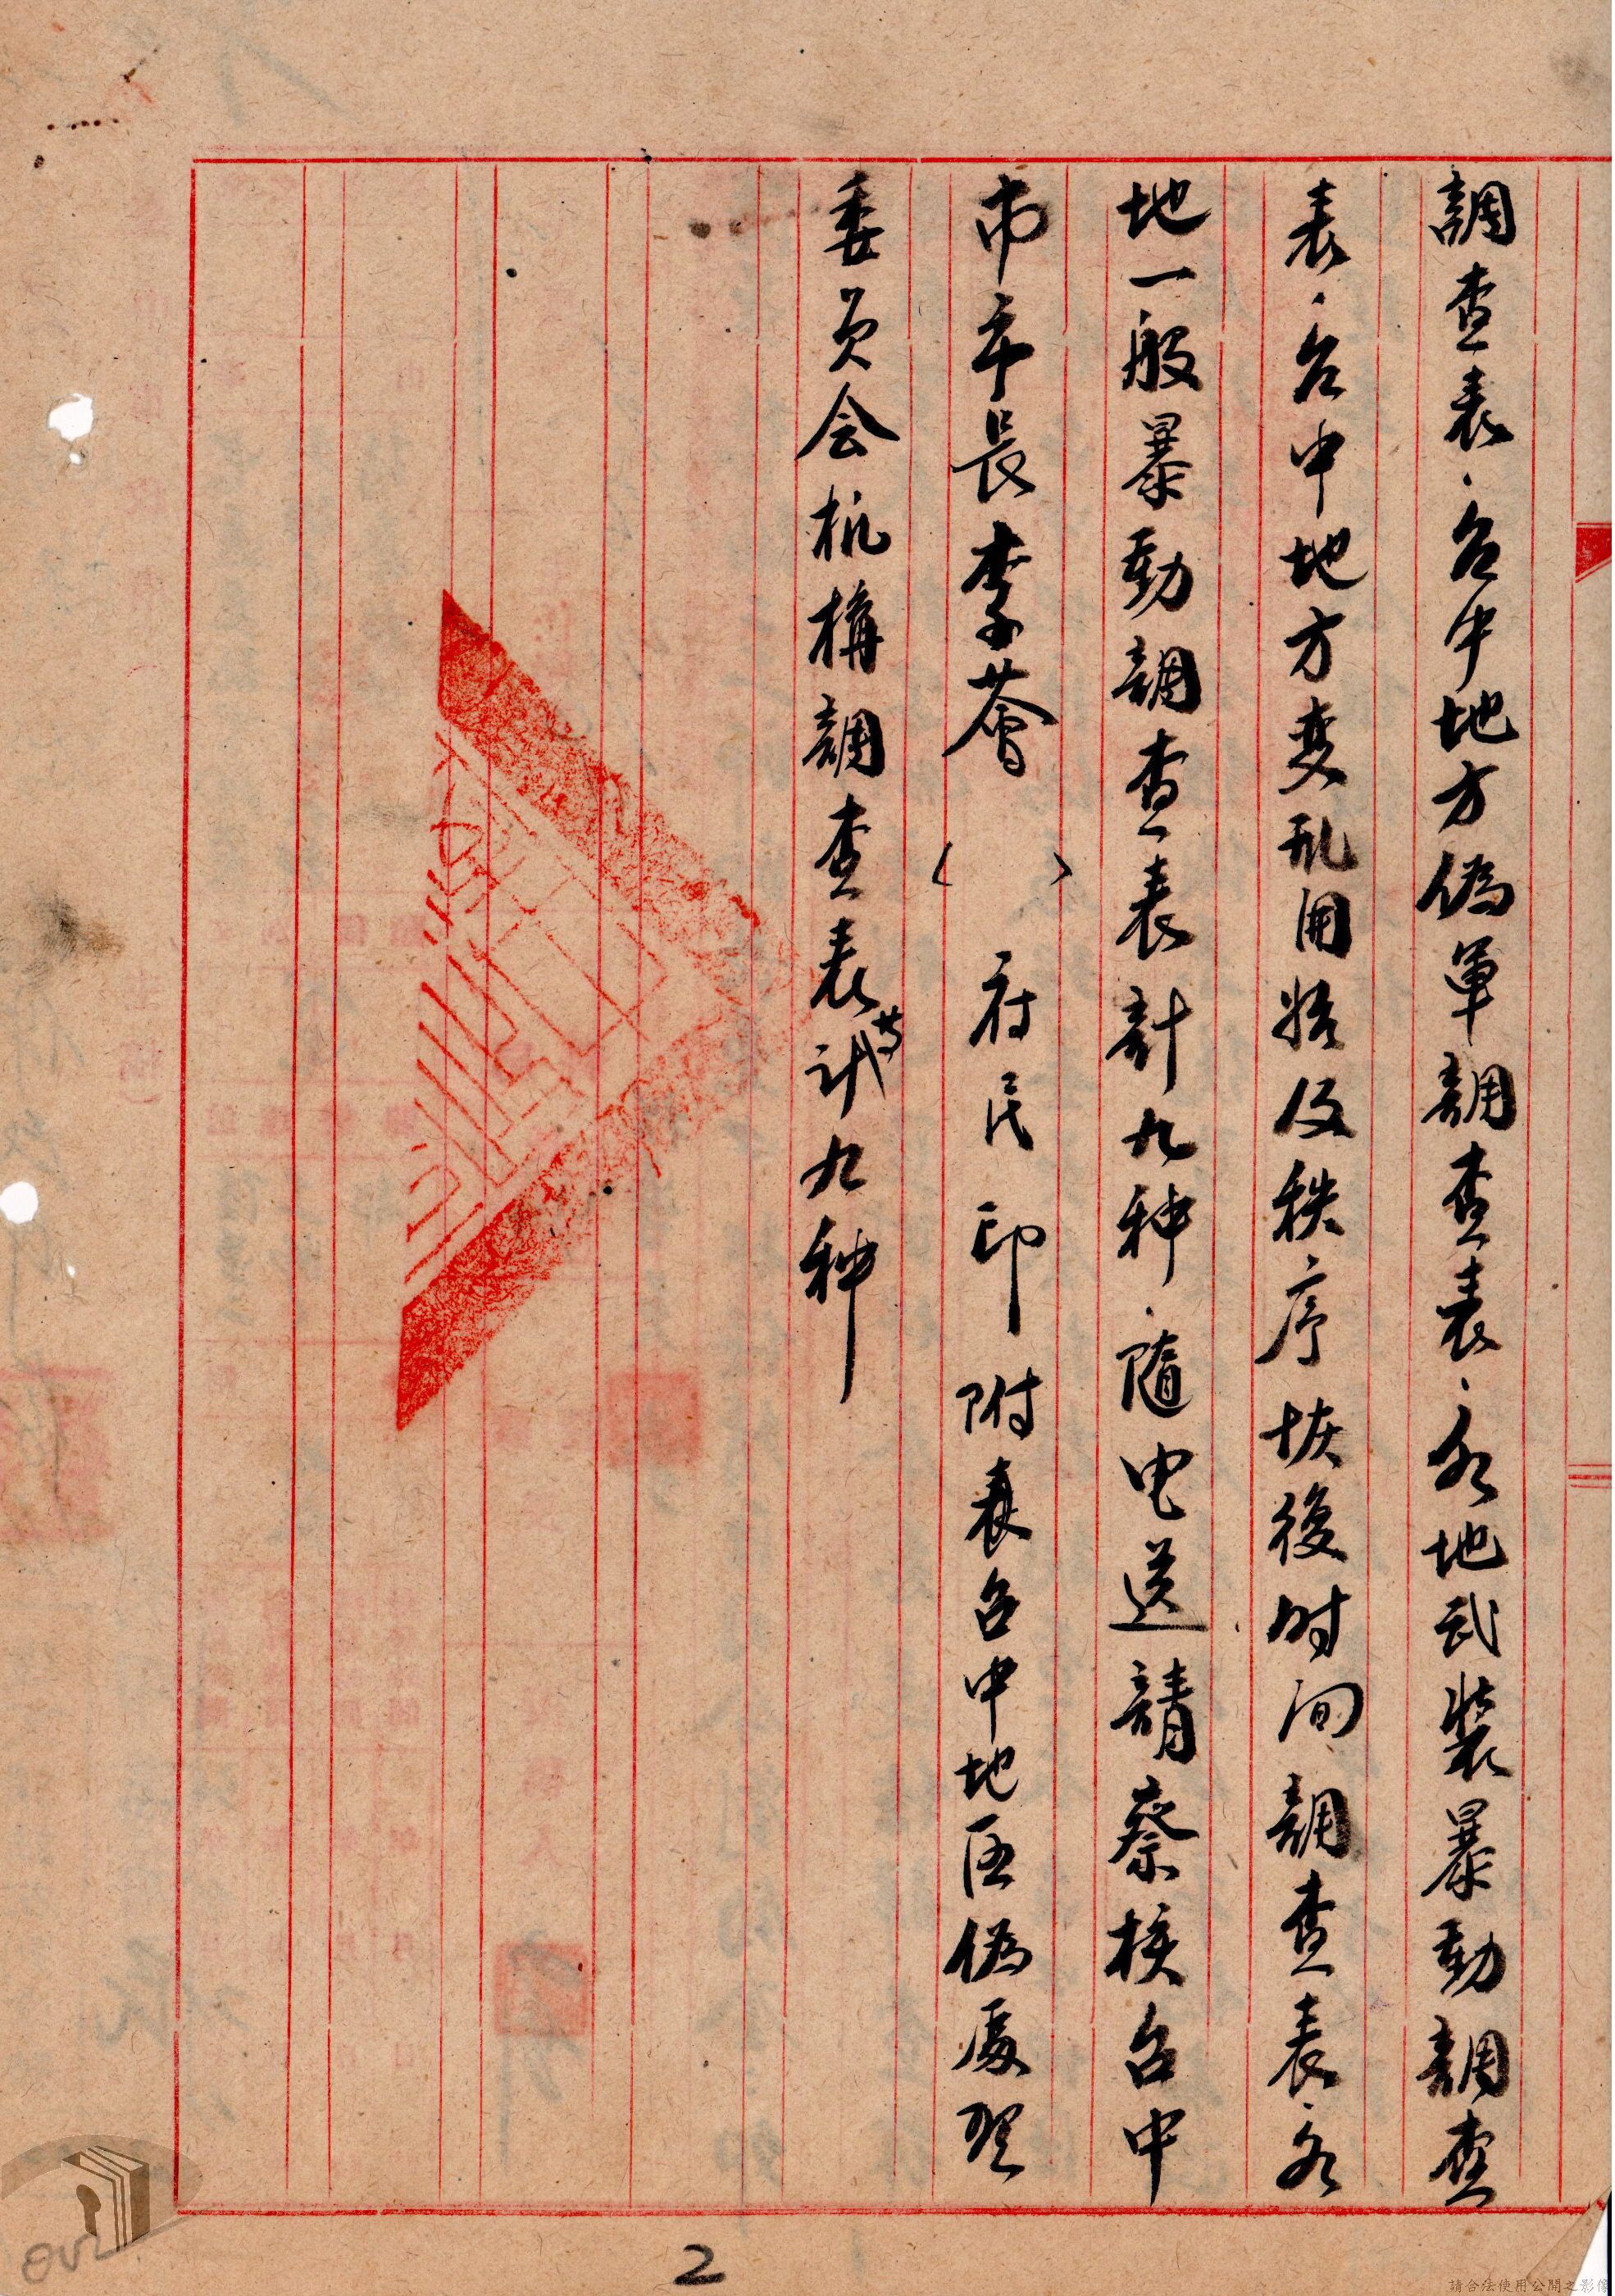 調查表、台中地方偽軍調查表、各地武裝暴動調查
表、台中地方变乱開始及秩序恢復时间調查表、各
地一般暴動調查表計九种、随电送請察核台中
市市長李薈 （ ）府民 印 附表台中地区偽處理
委员会机構調查表等計九种
2
請合法使用公開之影像